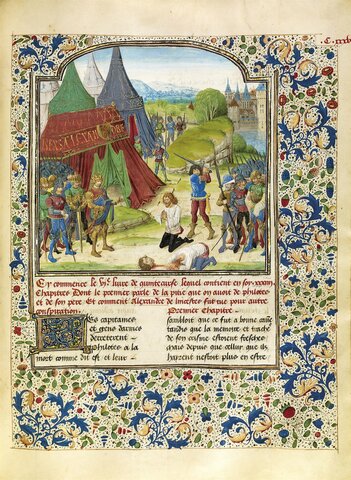 Cy commence le vije livre de quinte curse lequel contient en soy xxxiii
Chapitres Dont le premier parle de la paix que on avoit de philotes
et de son pere Et comment Alexandre de lincestes fut tue pour autre
conspiration.
Premier chapitre
Les capitaines
et grens darmes
decreterent
philotes a la
mort comme dit est et leur
sembloit que ce fut a bonne cause
tandis que la memoire et trache
de son crisme estoient fresches
mais depuis que cellui que ilz
hayoient nestoit plus en estre